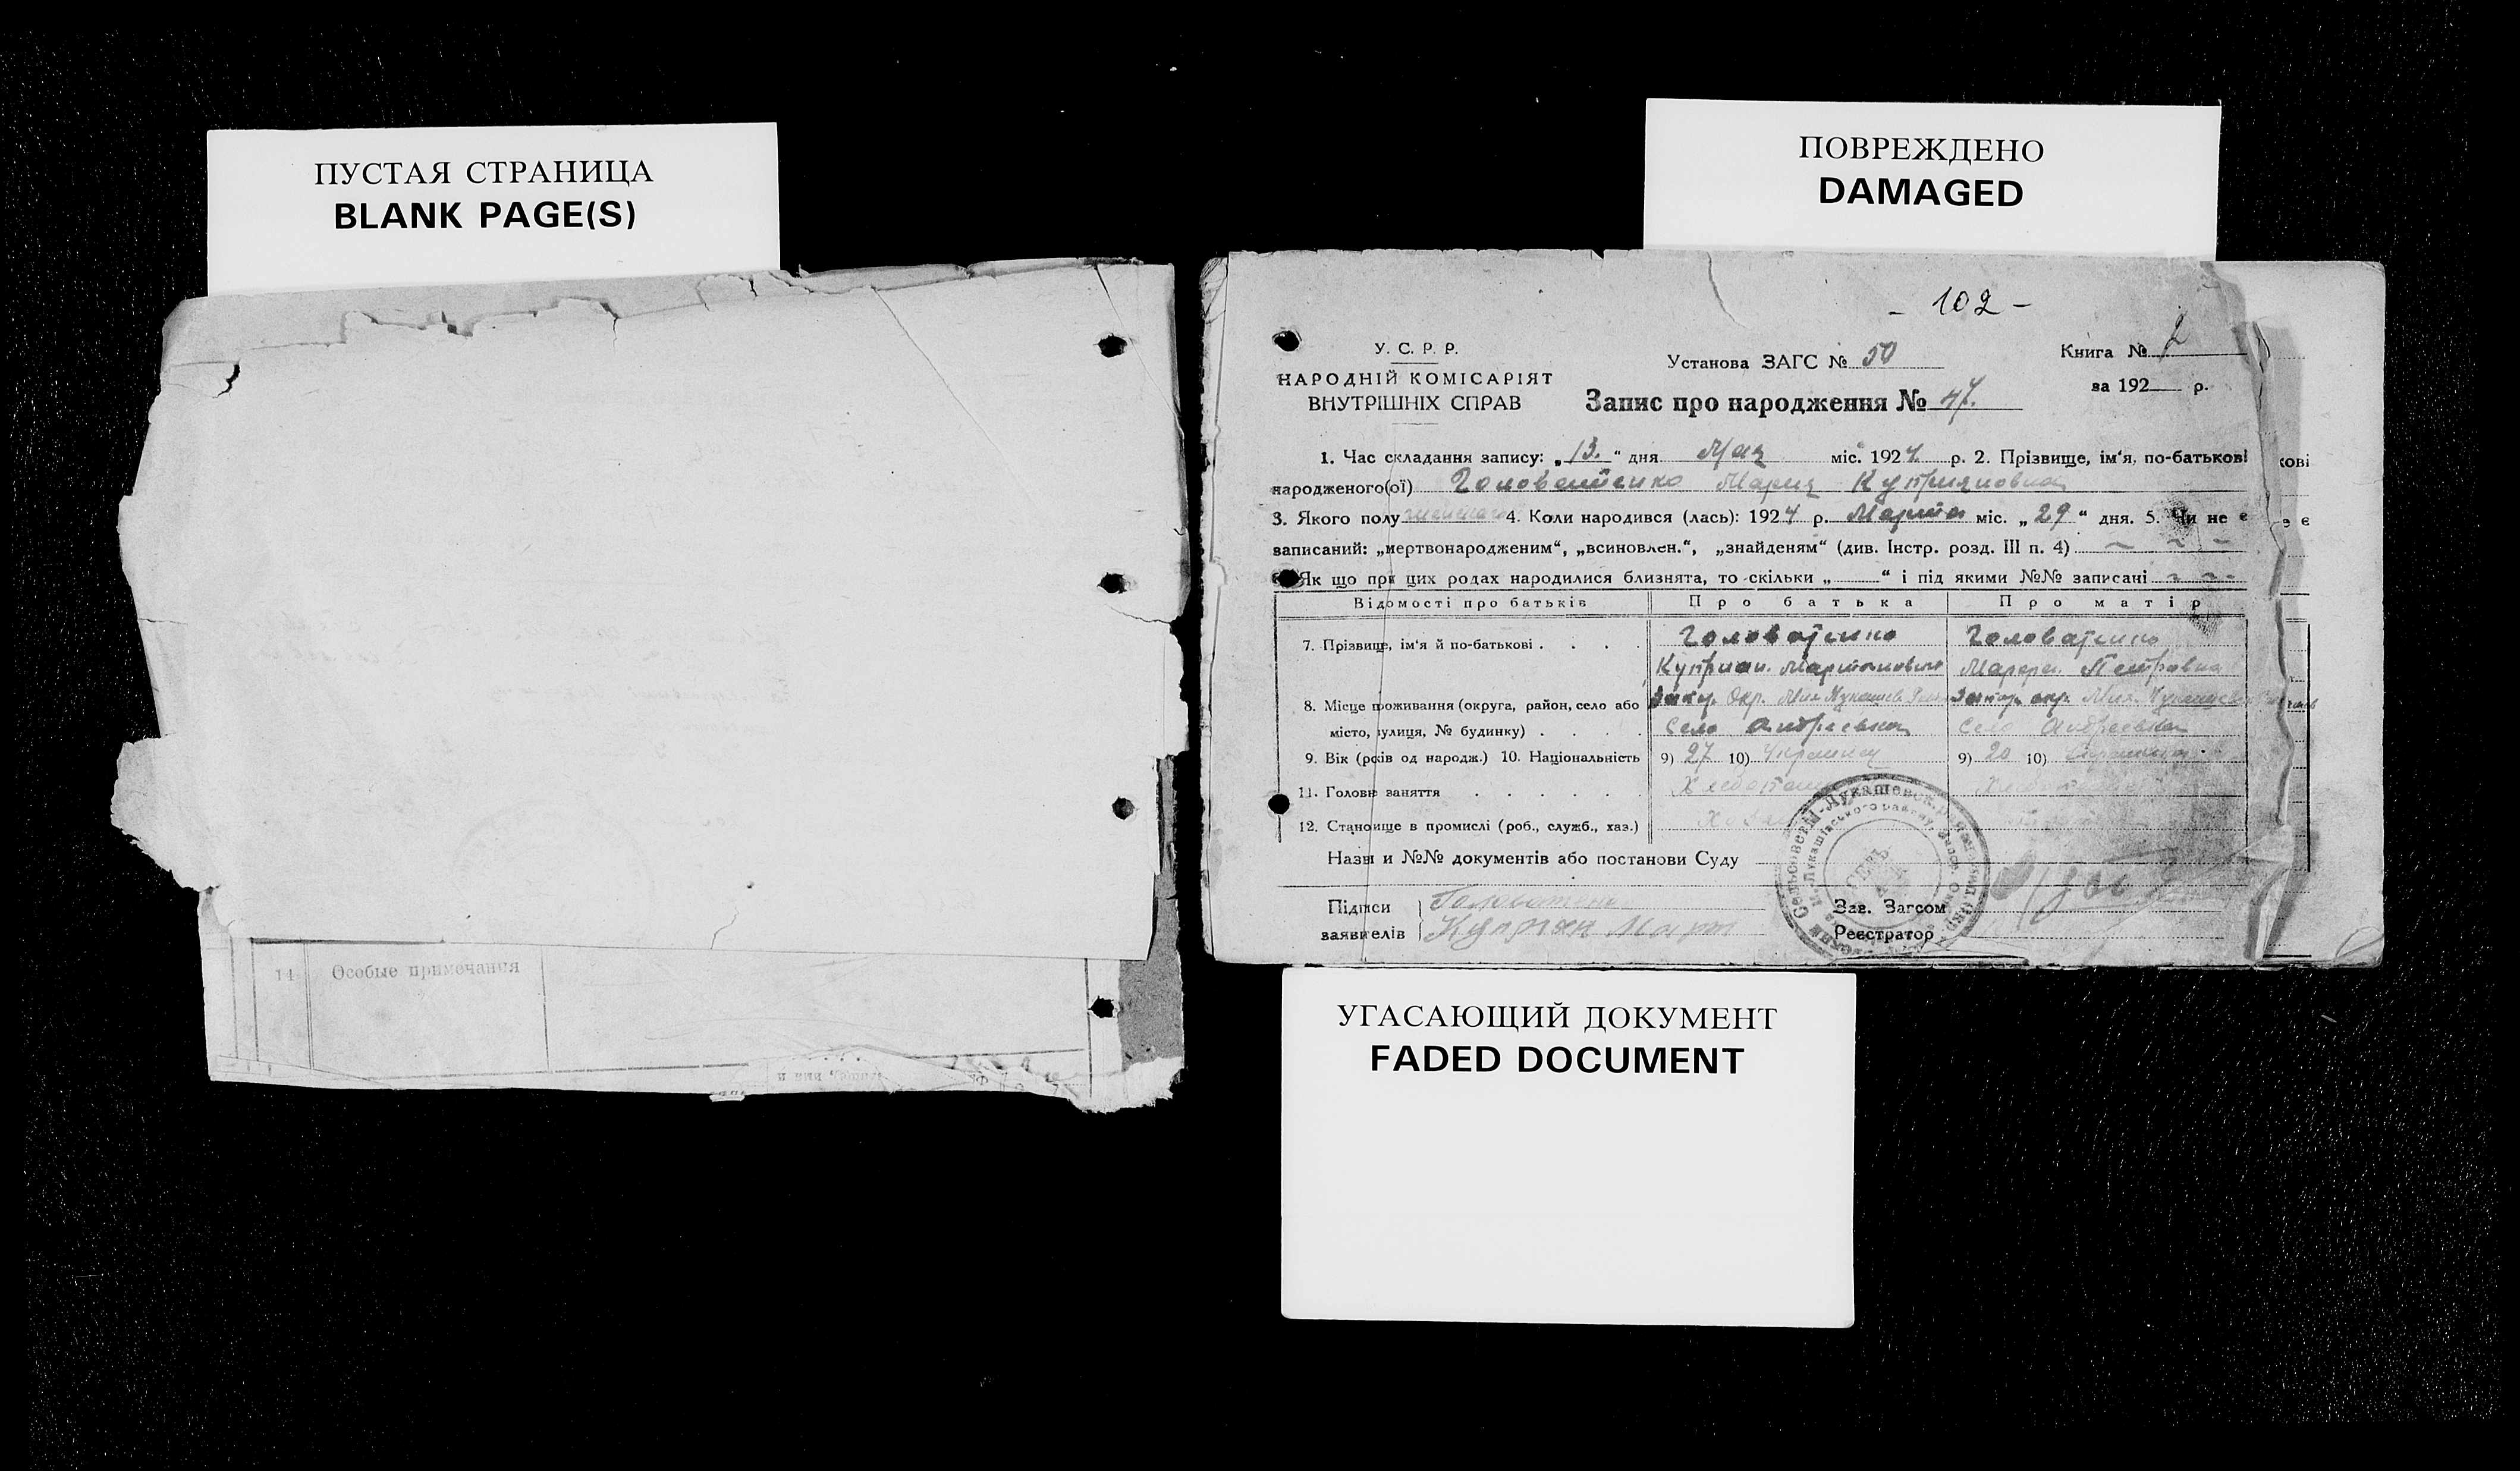 ПУСТАЯ СТРАНИЦА
BLANK PAGE(S)
14 Особые примечания
ПОВРЕЖДЕНО
DAMAGED
- 102 -
У. С. Р. Р.
НАРОДНІЙ КОМІСАРІЯТ
ВНУТРІШНІХ СПРАВ
Установа ЗАГС № 50
Книга № 2
за 192 р.
Запис про народження № 47.
1. Час складання запису: „13.“ дня Мая міс. 1924 р. 2. Прізвище, ім‘я, по-батькові
народженого(ої) Головатенко Мария Куприяновна
3. Якого полу женского 4. Коли народився (лась): 1924 р. Марта міс. „29“ дня. 5. Чи не є
записаний: „мертвонародженим“, „всиновлен.“, „знайденям“ (див. Інстр. розд. III п. 4)
Як що при цих родах народилися близнята, то скільки „ “ і під якими №№ записані
Відомості про батьків Про батька Про матір
7. Прізвище, ім‘я й по-батькові Головатенко Головатенко
Куприян Мартинович Петровна
8. Місце проживання (округа, район, село або Окр. окр.
місто, вулиця, № будинку) Село Андреевка Село Андреевка
9. Вік (років од народж.) 10. Національність 9) 27 10) Украинец 9) 20 10)
11. Головне заняття
12. Становище в промислі (роб., служб., хаз.)
Назви и №№ документів або постанови Суду
Підписи Головатенко
заявителів Куприян Март
Зав. Загсом
Реєстратор
УГАСАЮЩИЙ ДОКУМЕНТ
FADED DOCUMENT